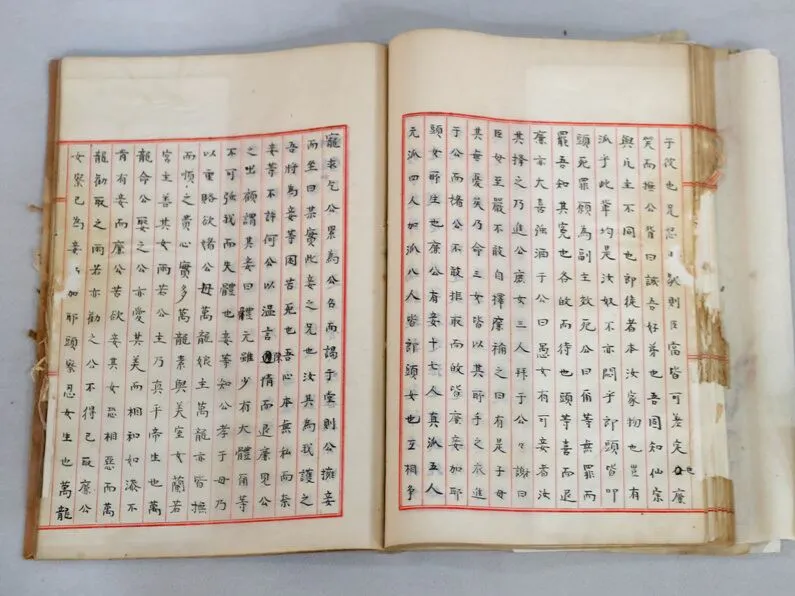 子院也是思□歎則臣富皆可差定廉
笑而撫公背曰誠吾好弟也吾固知仙宗
與凡主不同也即徒者本汝家物也豈有
派乎此輩均是汝奴不亦悶乎郎頭皆叩
頭死罪願為副主效死公曰角等無罪而
罷吾知其冤也各故而待也頭等喜而退
廉亦大喜強酒于公曰愚女有可妾者汝
其擇之乃進公庶女三人拜于公々謝曰
臣母至嚴不敢自擇廉稱之曰有是子母
其無憂矣乃命三女皆以其所乎之衣進
于公而諸公不敢拒取而故皆廉妾加耶
頭女所生也廉公有妾十七人真派五人
元派四人加派八人皆郎頭女也互相爭
寵求乞公累為公色而謁于室則公擁妾
而坐曰某實此妾之兄也汝其為我護之
吾將為妾等困苦死也吾心本無私而奈
妾等不許何公以溫言陳情而退廉見公
之出顧謂其妾曰體元雖少有大體角等
不可強我而失體也妾等知公孝于母乃
以重賂欲諸公母萬龍娘主萬龍亦皆撫
而順之費心實多萬龍素與美室女蘭若
宮主善其女雨若公主乃真平帝生也萬
龍命公娶之公亦愛其美而相和如漆不
肯有妾而廉公苦欲妾其女恐相惡而萬
龍勸取之雨若亦勸之公不得已取廉公
女寮已為妾々加耶頭寮忍女生也萬龍